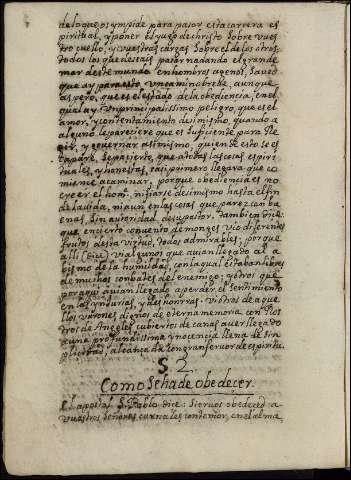 de lo que os ympide para pasar esta carrera es
piritual, y poner el yugo de christo sobre vues
tro cuello, y vuestras cargas sobre el de los otros,
todos los que deseais pasar nadando el grande
mar deste mundo en hombros agenos, saued
que ay para esto vn camino brebe, aunque
aspero, que es el estado de la obediencia, en el
qual ay vn principalissimo peligro, que es el
amor, y contentamiento de si mismo, quando a
alguno le pareciere que es suficiente para
regir, y governar a si mismo, quien de esto se es
capare, sepa cierto, que a todas las cosas espiri
tuales, y honestas, casi primero llegara que co
mience a caminar, porque obediencia es no
creer el hombre, ni fiarse de si mismo hasta el fin
de la vida, ni aun en las cosas que parezcan bu
enas, sin autoridad de su pastor. tambien dice:
que en cierto convento de monges vio diferentes
frutos desta virtud, todos admirables; porque
alli (dice) vi algunos que auian llegado al a
bismo de la humildad, con la qual estaban libres
de muchos combates del enemigo; y otros que
por aqui auian llegado a perder el sentimiento
en las ynjurias, y deshonrras. Vi otros de aque
llos varones, dignos de eterna memoria, con ros
tros de Angeles cubiertos de canas auer llegado
a una profundissima ynocencia llena de sim
plicidad, alcançada con gran feruor de espiritu.
§. 2
Como Se ha de obedecer.
El apostol S. Pablo dice: Sieruos obedeced a
vuestros señores carnales con temor, en el alma,